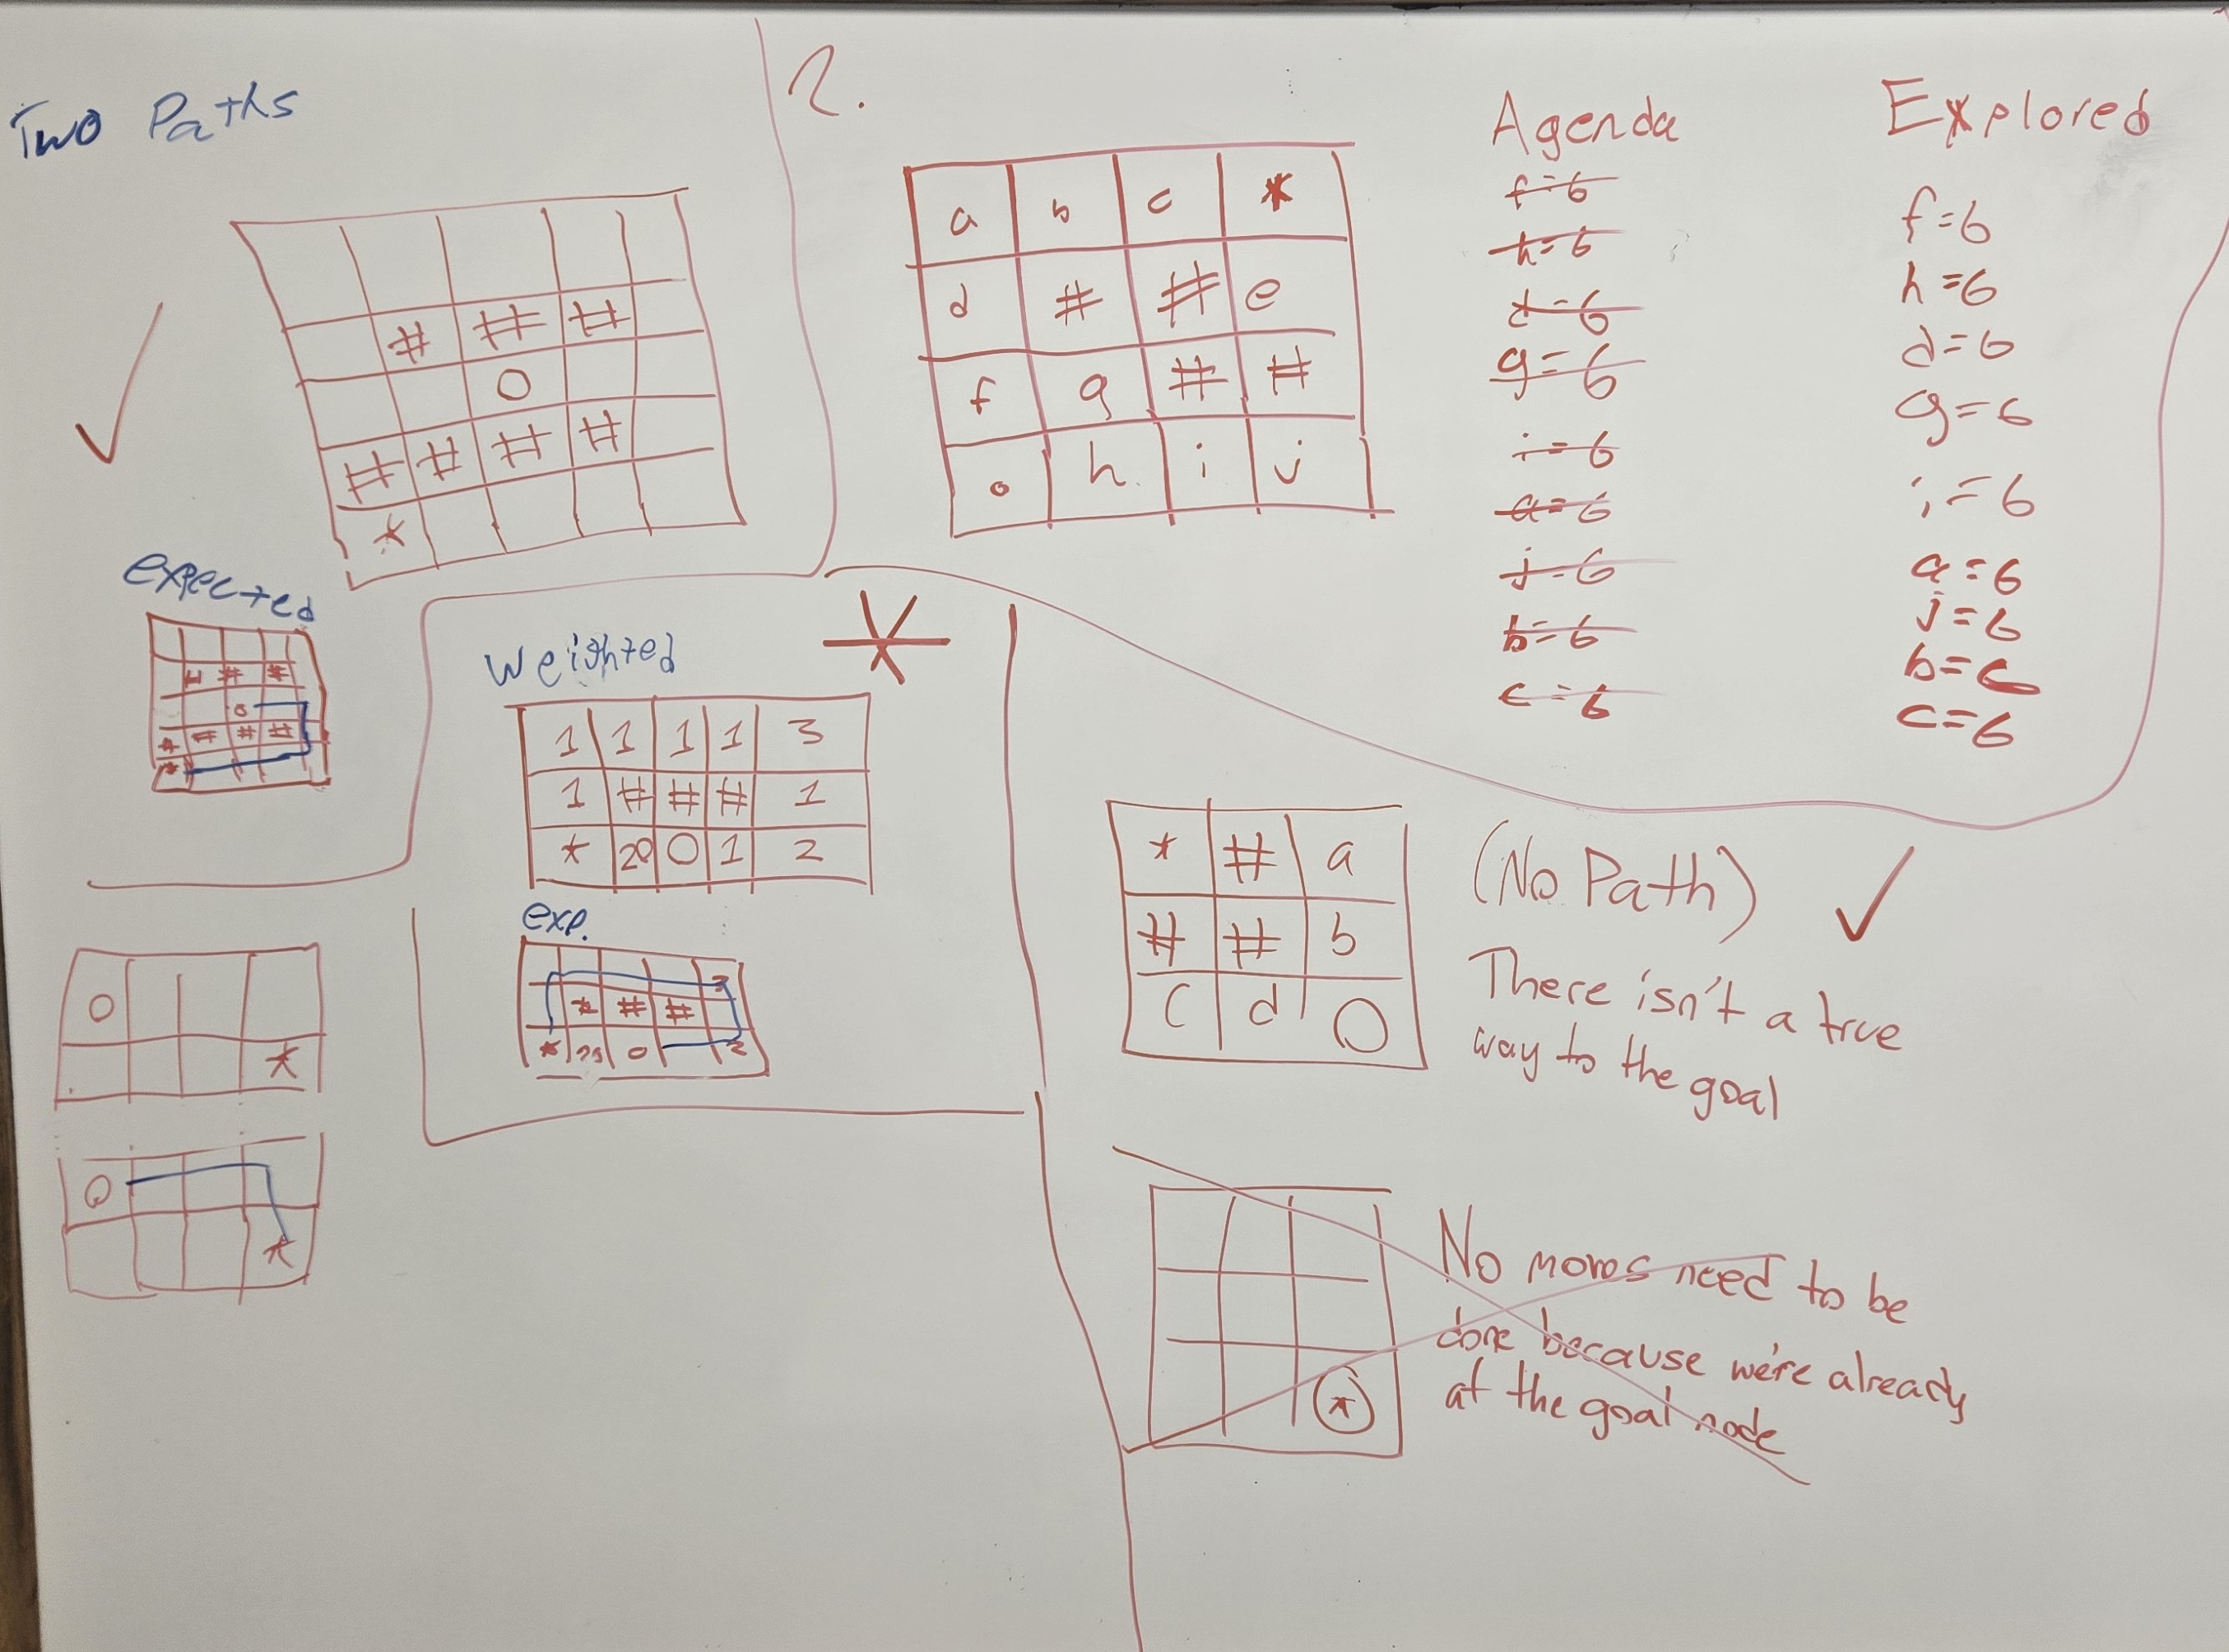 Two Paths
# # #
O
# # # #
*
expected
# # #
o
# # # #
*
O
*
O
*
2.
a b c *
d # # e
f g # #
o h i j
Agenda
f=6
h=6
d=6
g=6
i=6
a=6
j=6
b=6
c=6
Explored
f=6
h=6
d=6
g=6
i=6
a=6
j=6
b=6
c=6
Weighted *
1 1 1 1 3
1 # # # 1
* 20 O 1 2
exp.
3
# #
* 20 o 2
* # a
# # b
C d O
(No Path)
There isn't a true
way to the goal
*
No moves need to be
done because we're already
at the goal node